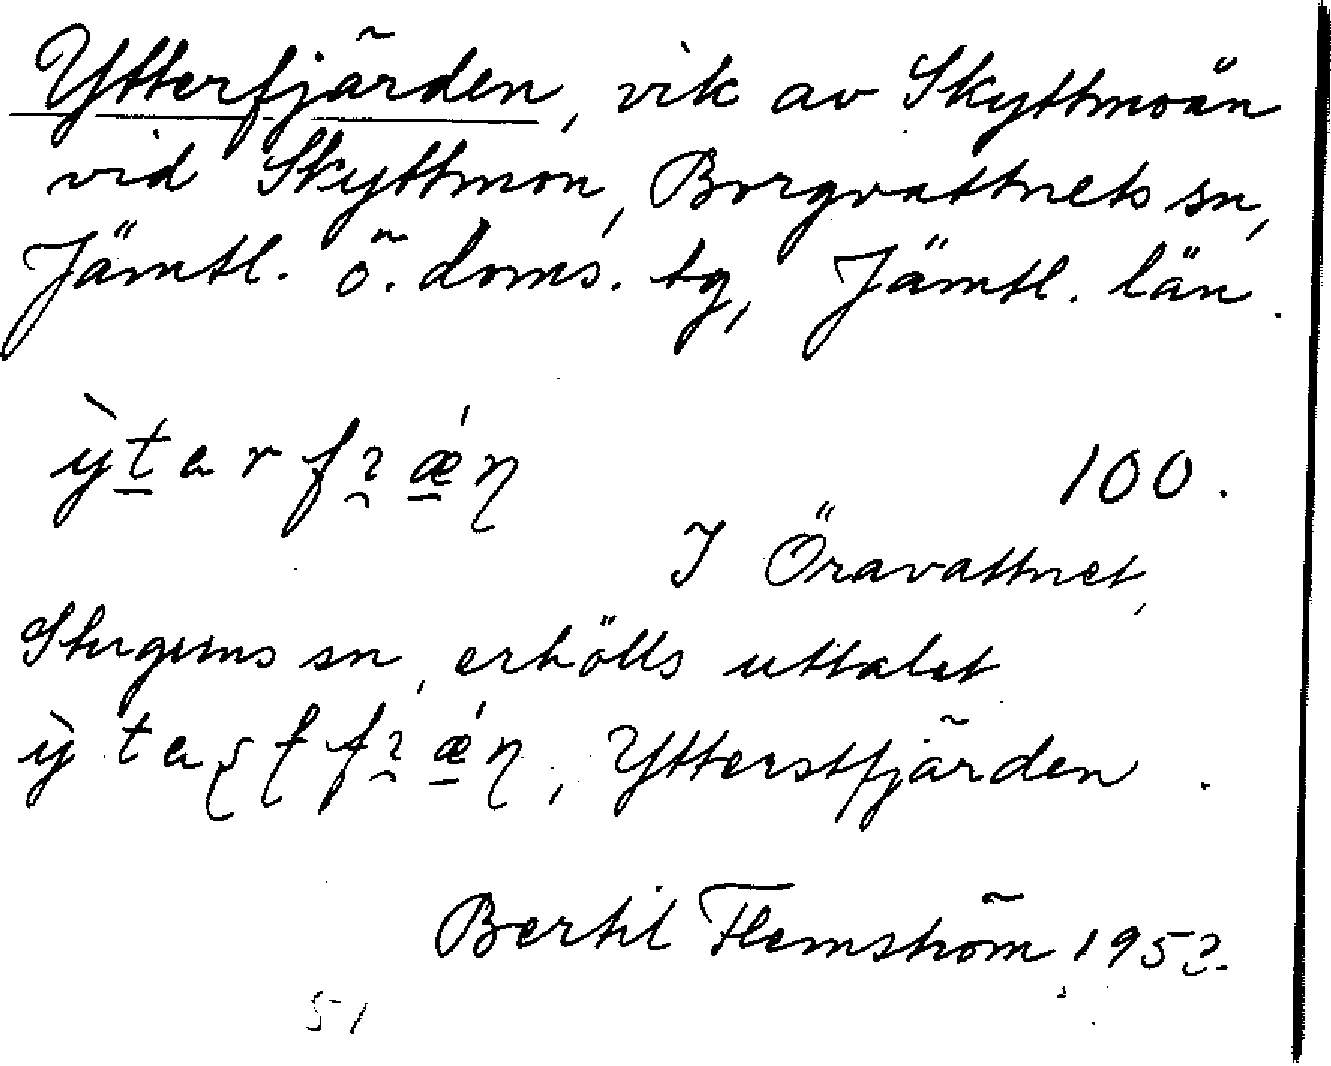 Ytterfjärden, vik av Skyttmoån
vid Skyttmon, Borgvattnets sn,
Jämtl. ö. doms. tg, Jämtl. län.
100.
I Öravattnet,
Stuguns sn, erhölls uttalet
Ytterstfjärden.
Bertil Flemström 1952.
51